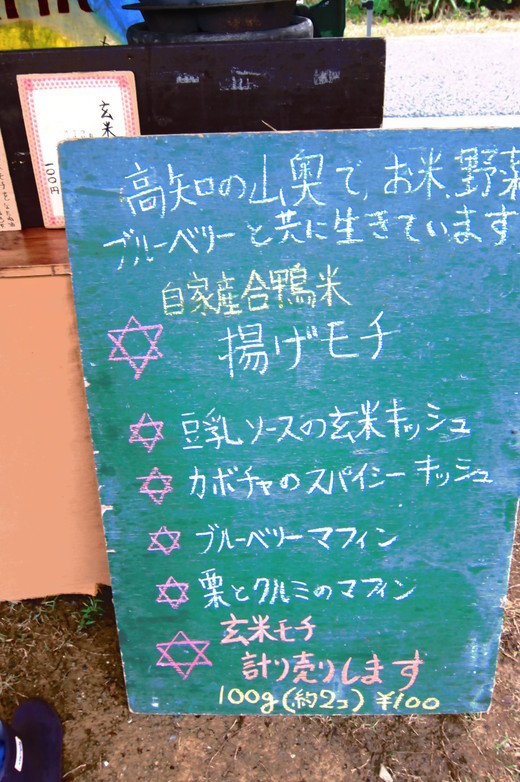 玄米
100円
高知の山奥で、お米、野菜
ブルーベリーと共に生きています
自家産合鴨米
揚げモチ
豆乳ソースの玄米キッシュ
カボチャのスパイシーキッシュ
ブルーベリーマフィン
栗とクルミのマフィン
玄米モチ
計り売りします
100g(約2コ) ¥100